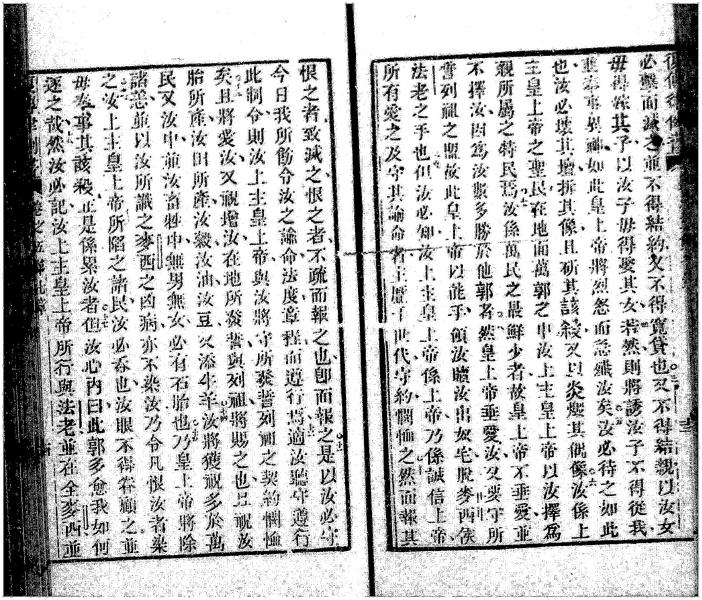 必擊而滅之並不得結約又不得寬貸也又不得結親以汝女
毋得嫁其子以汝子毋得娶其女若然則將誘汝子不得從我
奉事異神如此皇上帝將烈怒而急殲汝矣汝必待之如此
也汝必壞其壇拆其像且斫其該殺又以炎燬其偶像汝係上
主皇上帝之聖民在地面萬郭之中汝上主皇上帝以汝擇爲
親所屬之特民焉汝係萬民之最鮮少者故皇上帝不垂愛並
不擇汝因爲汝數多勝於他郭者然皇上帝垂愛汝又要守所
誓列祖之盟故此皇上帝以能手領汝贖汝出奴宅脫麥西侯
法老之手也但汝必知汝上主皇上帝係上帝乃係誠信上帝
所有愛之及守其諭命者于歷千世代守約憫恤之然而報其
恨之者致滅之恨之者不疏而報之也卽面報之是以汝必守
今日我所飭令汝之諭命法度章程而遵行焉適汝聽守遵行
此制令則汝上主皇上帝與汝將守所發誓列祖之契約憫恤
矣且將愛汝又祝增汝在地所發誓與列祖將賜之也且祝汝
胎所產汝田所產汝穀汝油汝豆又添牛羊汝將獲祝多於萬
民又汝中並汝畜牲中無男無女必有石胎也乃皇上帝將除
諸恙並以汝所識之麥西之凶病亦不染汝乃令凡恨汝者染
之汝上主皇上帝所陷之諸民汝必吞也汝眼不得眷顧之並
毋奉事其該殺正是係累汝者但汝心內曰此郭多愈我如何
逐之哉然汝必記汝上主皇上帝所行與法老並在全麥西並